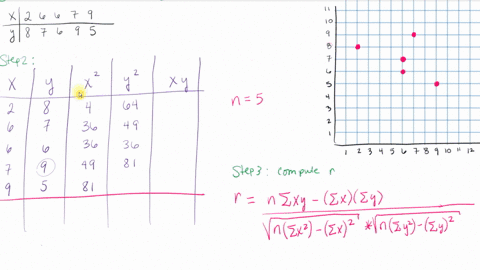 x 2 6 6 7 9
y 8 7 6 9 5
Step2:
x y x² y² xy
2 8 4 64
6 7 36 49
6 6 36 36
7 9 49 81
9 5 81
n = 5
11
10
9
8
7
6
5
4
3
2
1
1 2 3 4 5 6 7 8 9 10 11 12
Step3: compute r
r = n Σxy - (Σx)(Σy)
√n(Σx²) - (Σx)² * √n(Σy²) - (Σy)²